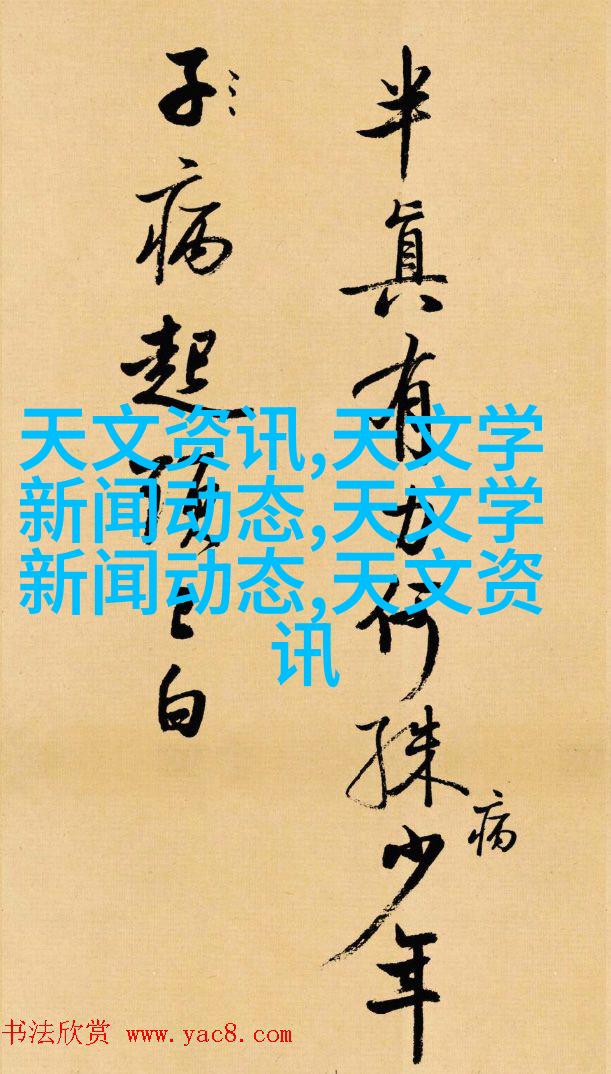 半真有力何殊少年
病
子病起頭已白
天文资讯,天文学
新闻动态,天文学
新闻动态,天文资
讯
书法欣赏 www.yac8.com